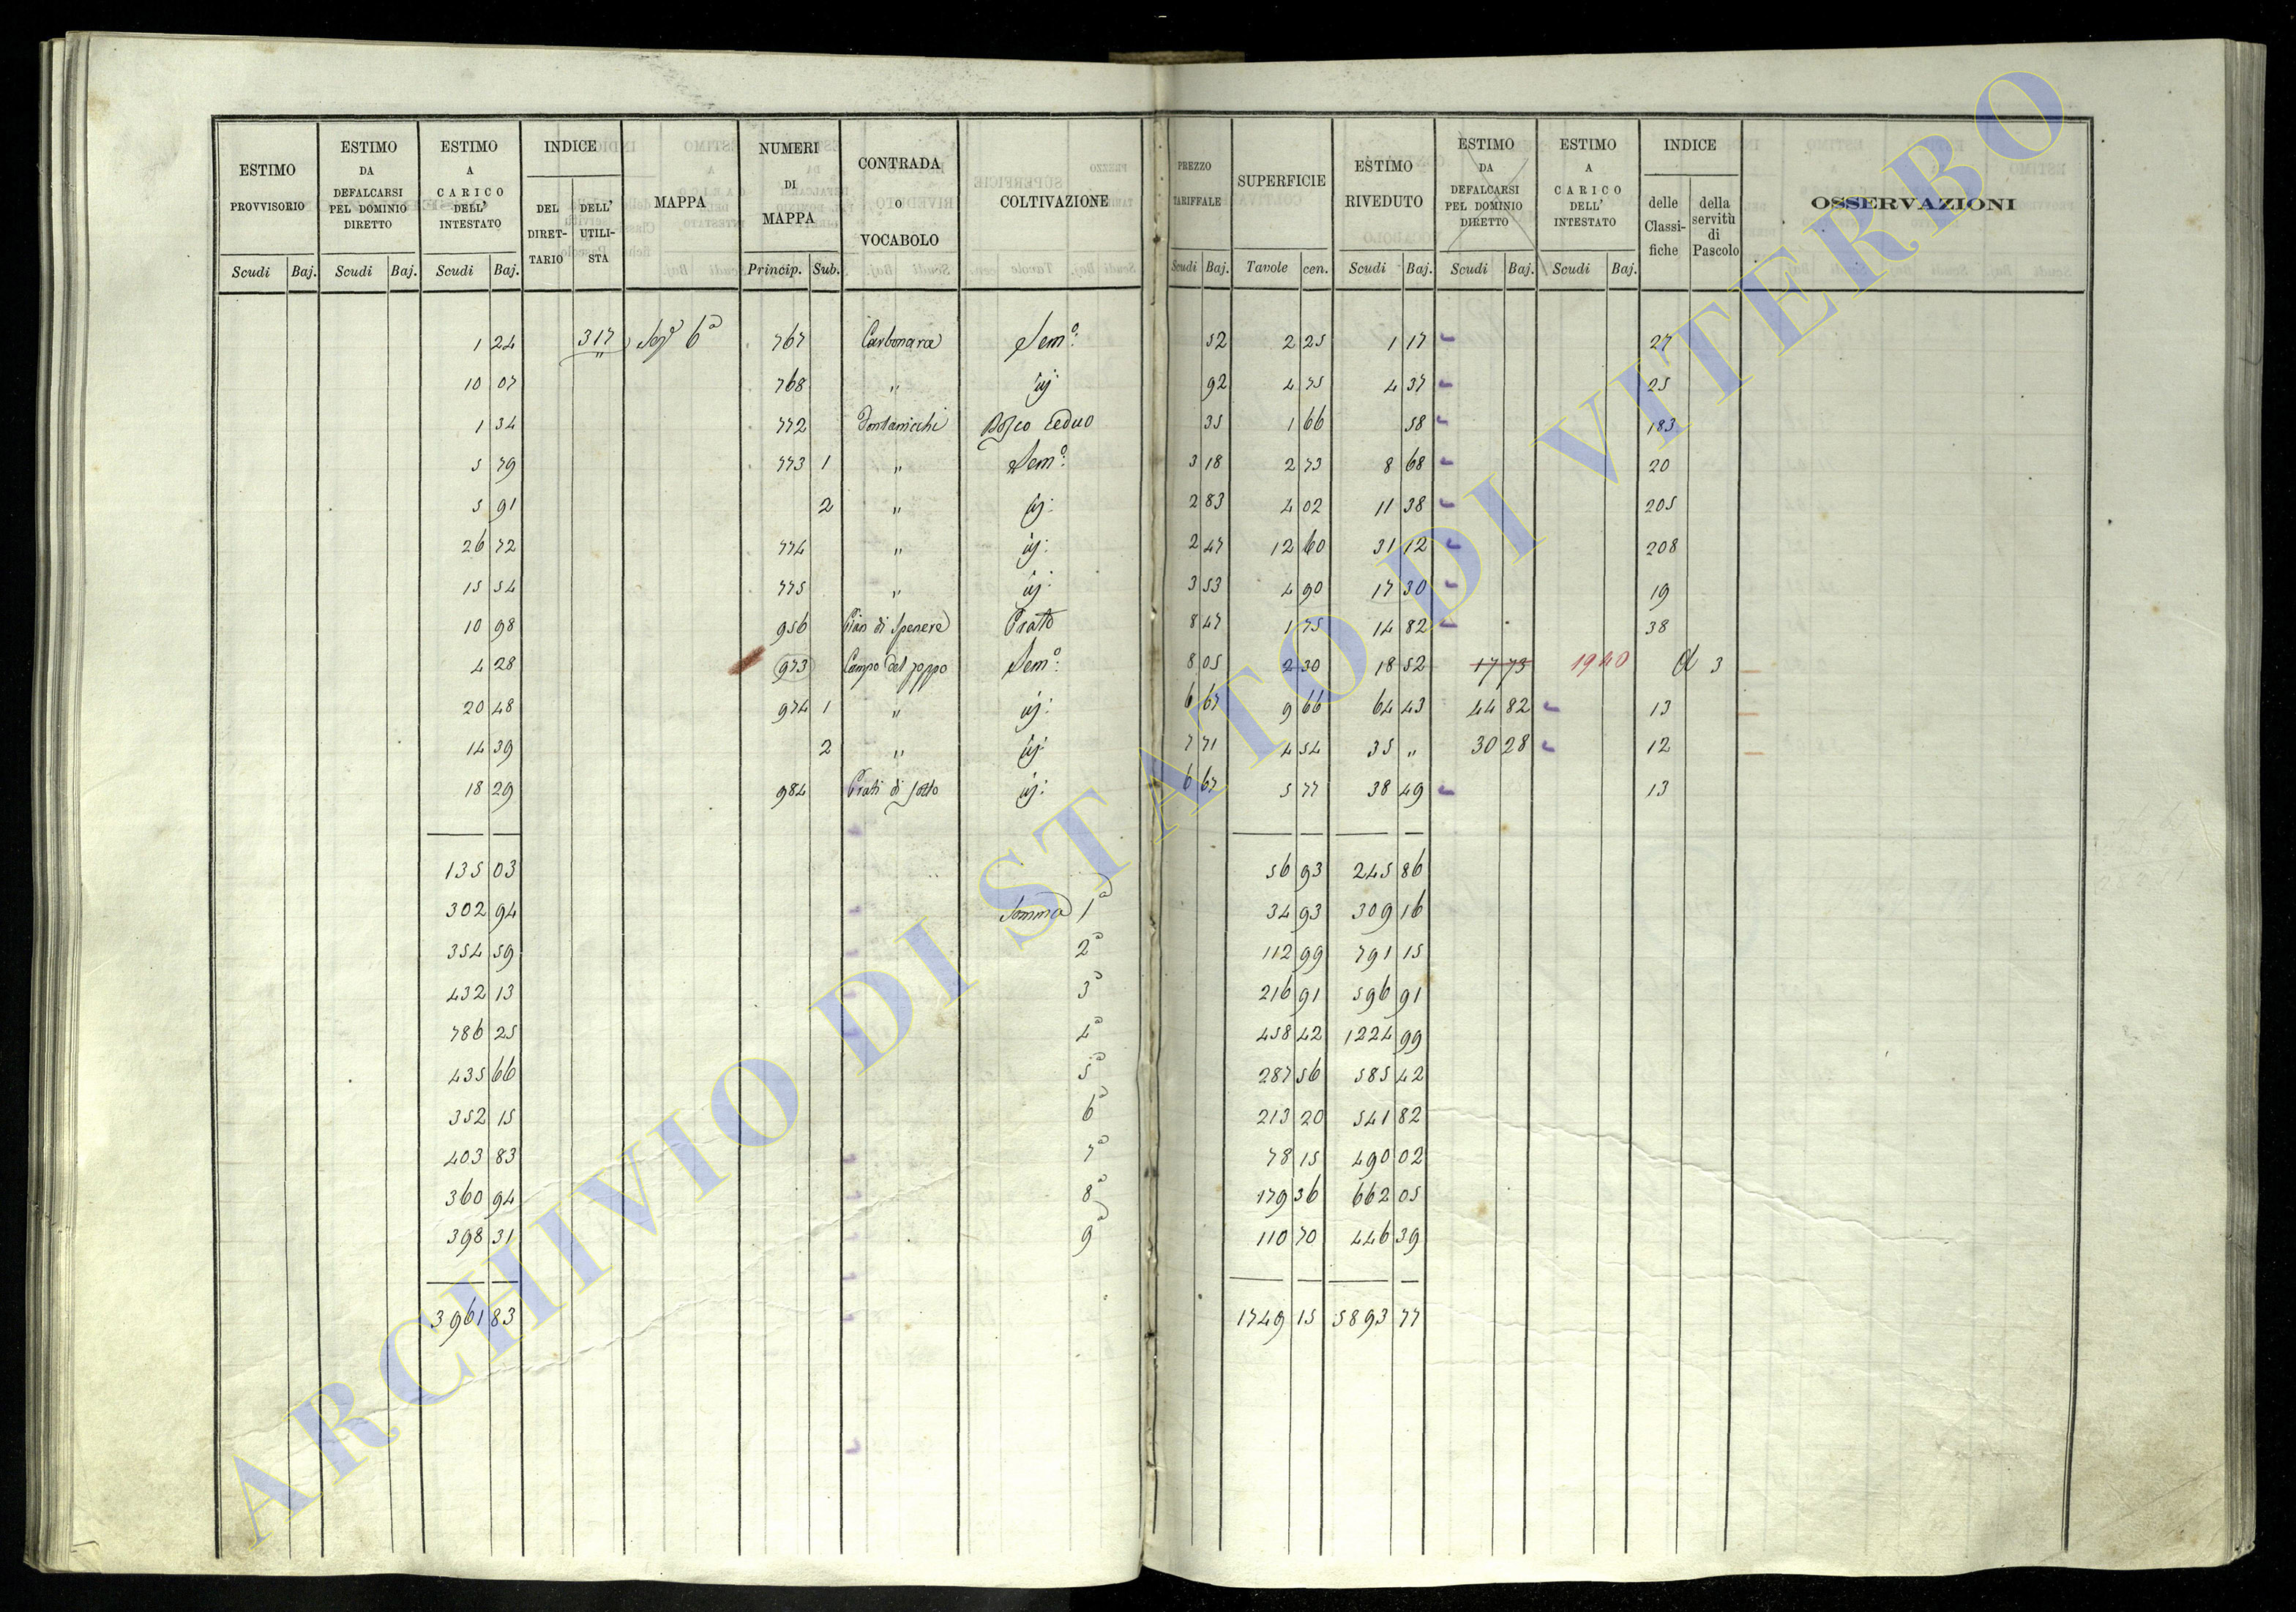 ESTIMO PROVVISORIO | ESTIMO DA DEFALCARSI PEL DOMINIO DIRETTO | ESTIMO A CARICO DELL' INTESTATO | INDICE DEL DIRETTARIO | DELL' UTILISTA | MAPPA | NUMERI DI MAPPA | CONTRADA O VOCABOLO | COLTIVAZIONE | PREZZO TARIFFALE | SUPERFICIE | ESTIMO RIVEDUTO | ESTIMO DA DEFALCARSI PEL DOMINIO DIRETTO | ESTIMO A CARICO DELL' INTESTATO | INDICE delle Classifiche | della servitù di Pascolo | OSSERVAZIONI
Scudi | Baj. | Scudi | Baj. | Scudi | Baj. | Princip. | Sub. | Scudi | Baj. | Tavole | cen. | Scudi | Baj. | Scudi | Baj. | Scudi | Baj.
1 24 | 317 | Sez 6ª | 767 | Carbonara | Semº: | 52 | 2 25 | 1 17 | 27
10 07 | 768 | " | iij | 92 | 4 75 | 4 37 | 25
1 34 | 772 | Fontanicchi | Bosco Ceduo | 35 | 1 66 | 58 | 183
5 79 | 773 | 1 | " | Semº: | 3 18 | 2 73 | 8 68 | 20
5 91 | 2 | " | iij: | 2 83 | 4 02 | 11 38 | 205
26 72 | 774 | " | iij: | 2 47 | 12 60 | 31 12 | 208
15 54 | 775 | " | iij: | 3 53 | 4 90 | 17 30 | 19
10 98 | 956 | Pian di Spenere | Prato | 8 47 | 1 75 | 14 82 | 38
4 28 | 973 | Campo del | Semº: | 8 05 | 2 30 | 18 52 | 17 73 | 1940 | 3
20 48 | 974 | 1 | " | iij: | 6 67 | 9 66 | 64 43 | 44 82 | 13
14 39 | 2 | " | iij: | 7 71 | 4 54 | 35 " | 30 28 | 12
18 29 | 984 | Prati di sotto | iij: | 6 67 | 5 77 | 38 49 | 13
135 03 | 56 93 | 245 86
302 94 | Somma 1ª | 34 93 | 309 16
354 59 | 2ª | 112 99 | 791 15
432 13 | 3ª | 216 91 | 596 91
786 25 | 4ª | 458 42 | 1224 99
435 66 | 5ª | 287 56 | 585 42
352 15 | 6ª | 213 20 | 541 82
403 83 | 7ª | 78 15 | 490 02
360 94 | 8ª | 179 36 | 662 05
398 31 | 9ª | 110 70 | 446 39
3961 83 | 1749 15 | 5893 77
ARCHIVIO DI STATO DI VITERBO